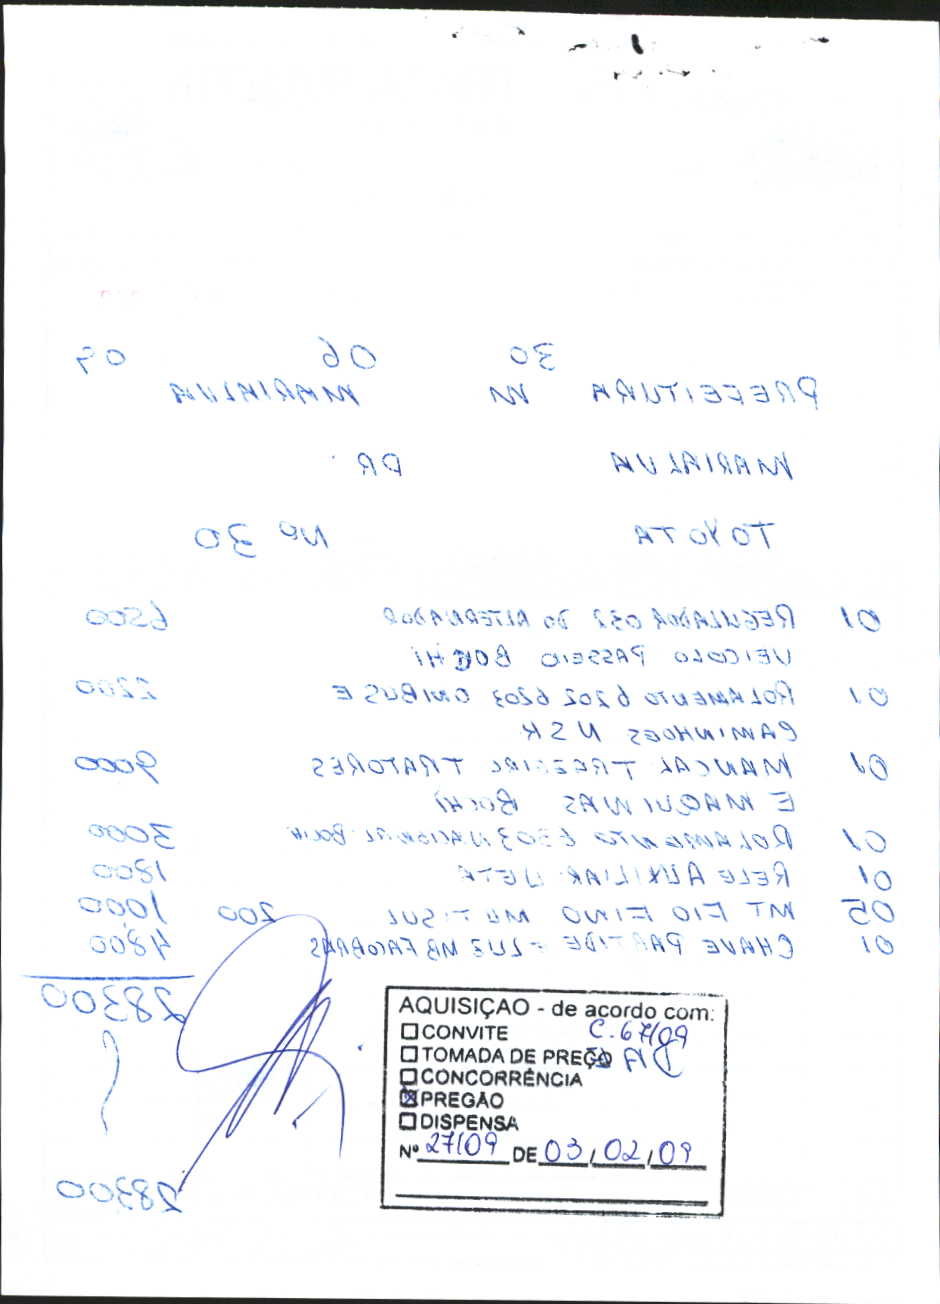 30 06 09
PREFEITURA M MARIALVA
MARIALVA PR.
TOYOTA Nº 30
01 REGULADOR 032 DO ALTERNADOR 6500
VEICOLO PASSEIO
01 ROLAMENTO 6202 6203 ONIBUS E 2200
CAMINHOES NSK
01 MANCAL TRAZEIRO TRATORES 9000
E MAQUINAS
01 ROLAMENTO 6303 NACIONAL 3000
01 RELE AUXILIAR 1800
05 MT FIO FINO 200 1000
01 CHAVE PARTIDE LUZ MB 4800
28300
28300
AQUISIÇAO - de acordo com:
CONVITE C. 67/09
TOMADA DE PREÇO
CONCORRÊNCIA
PREGÃO
DISPENSA
Nº 27/09 DE 03/02/09